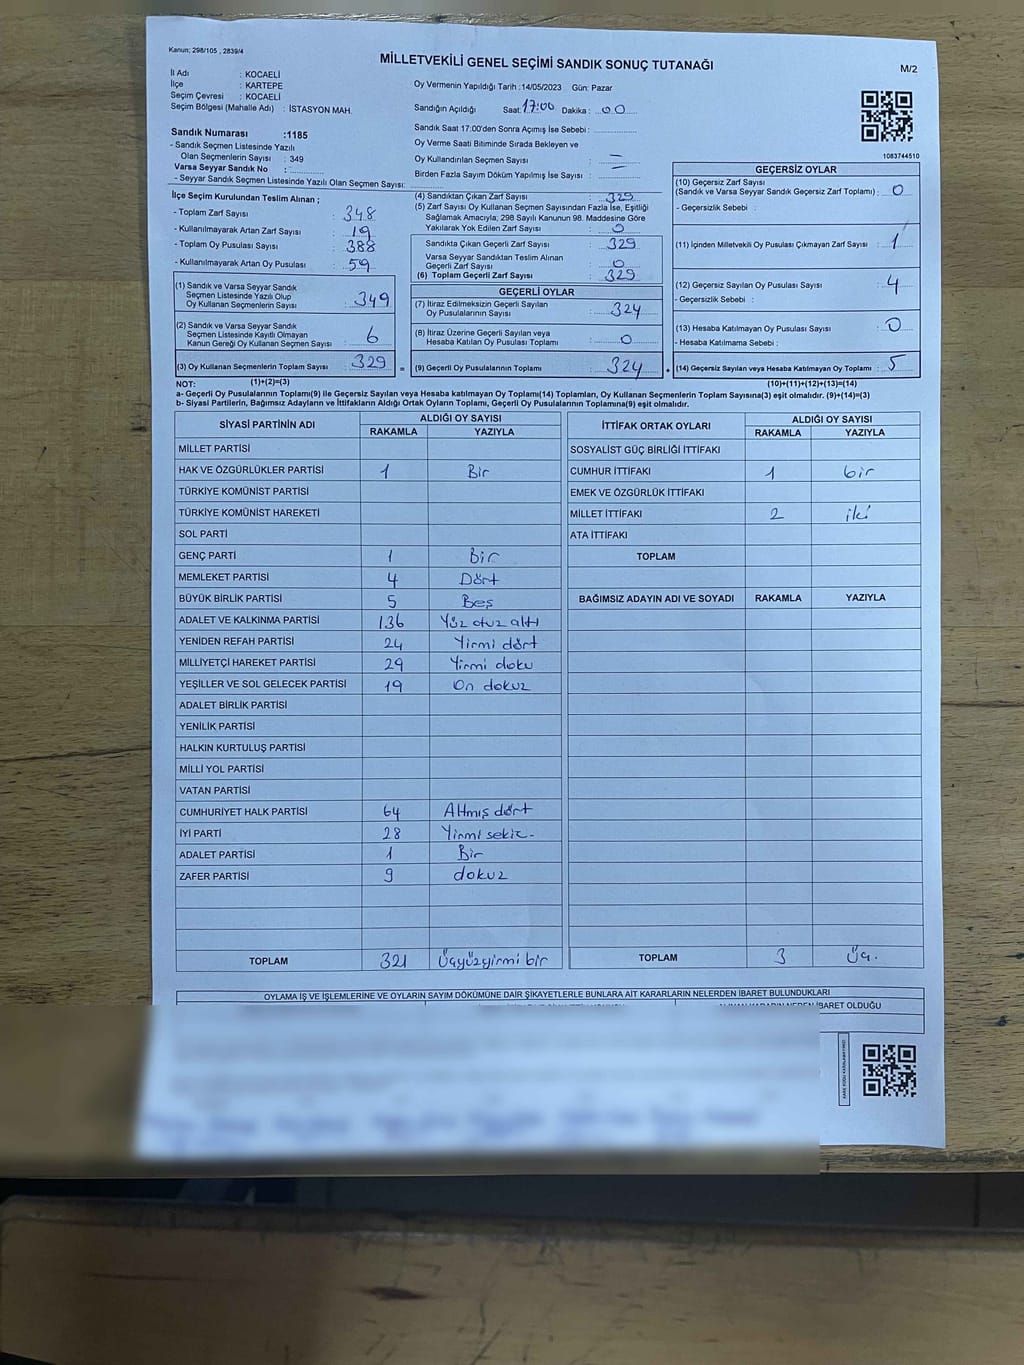 Kanun: 298/105 , 2839/4
MİLLETVEKİLİ GENEL SEÇİMİ SANDIK SONUÇ TUTANAĞI
M/2
İl Adı : KOCAELİ
İlçe : KARTEPE
Seçim Çevresi : KOCAELİ
Seçim Bölgesi (Mahalle Adı) : İSTASYON MAH.
Sandık Numarası :1185
- Sandık Seçmen Listesinde Yazılı
Olan Seçmenlerin Sayısı : 349
Varsa Seyyar Sandık No :
- Seyyar Sandık Seçmen Listesinde Yazılı Olan Seçmen Sayısı:
Oy Vermenin Yapıldığı Tarih :14/05/2023 Gün: Pazar
Sandığın Açıldığı Saat: 17:00 Dakika : 00
Sandık Saat 17:00'den Sonra Açımış İse Sebebi :
Oy Verme Saati Bitiminde Sırada Bekleyen ve
Oy Kullandırılan Seçmen Sayısı : —
Birden Fazla Sayım Döküm Yapılmış İse Sayısı : —
1083744510
İlçe Seçim Kurulundan Teslim Alınan ;
- Toplam Zarf Sayısı : 348
- Kullanılmayarak Artan Zarf Sayısı : 19
- Toplam Oy Pusulası Sayısı : 388
- Kullanılmayarak Artan Oy Pusulası : 59
(1) Sandık ve Varsa Seyyar Sandık
Seçmen Listesinde Yazılı Olup
Oy Kullanan Seçmenlerin Sayısı : 349
(2) Sandık ve Varsa Seyyar Sandık
Seçmen Listesinde Kayıtlı Olmayan
Kanun Gereği Oy Kullanan Seçmen Sayısı : 6
(3) Oy Kullanan Seçmenlerin Toplam Sayısı : 329
(4) Sandıktan Çıkan Zarf Sayısı : 329
(5) Zarf Sayısı Oy Kullanan Seçmen Sayısından Fazla İse, Eşitliği
Sağlamak Amacıyla; 298 Sayılı Kanunun 98. Maddesine Göre
Yakılarak Yok Edilen Zarf Sayısı : 0
Sandıkta Çıkan Geçerli Zarf Sayısı : 329
Varsa Seyyar Sandıktan Teslim Alınan
Geçerli Zarf Sayısı : 0
(6) Toplam Geçerli Zarf Sayısı : 329
GEÇERLİ OYLAR
(7) İtiraz Edilmeksizin Geçerli Sayılan
Oy Pusulalarının Sayısı : 324
(8) İtiraz Üzerine Geçerli Sayılan veya
Hesaba Katılan Oy Pusulası Toplamı : 0
= (9) Geçerli Oy Pusulalarının Toplamı : 324
GEÇERSİZ OYLAR
(10) Geçersiz Zarf Sayısı
(Sandık ve Varsa Seyyar Sandık Geçersiz Zarf Toplamı) : 0
- Geçersizlik Sebebi :
(11) İçinden Milletvekili Oy Pusulası Çıkmayan Zarf Sayısı : 1
(12) Geçersiz Sayılan Oy Pusulası Sayısı : 4
- Geçersizlik Sebebi :
(13) Hesaba Katılmayan Oy Pusulası Sayısı : 0
- Hesaba Katılmama Sebebi :
+ (14) Geçersiz Sayılan veya Hesaba Katılmayan Oy Toplamı : 5
NOT: (1)+(2)=(3) (10)+(11)+(12)+(13)=(14)
a- Geçerli Oy Pusulalarının Toplamı(9) ile Geçersiz Sayılan veya Hesaba katılmayan Oy Toplamı(14) Toplamları, Oy Kullanan Seçmenlerin Toplam Sayısına(3) eşit olmalıdır. (9)+(14)=(3)
b- Siyasi Partilerin, Bağımsız Adayların ve İttifakların Aldığı Ortak Oyların Toplamı, Geçerli Oy Pusulalarının Toplamına(9) eşit olmalıdır.
SİYASİ PARTİNİN ADI ALDIĞI OY SAYISI
RAKAMLA YAZIYLA
MİLLET PARTİSİ
HAK VE ÖZGÜRLÜKLER PARTİSİ 1 Bir
TÜRKİYE KOMÜNİST PARTİSİ
TÜRKİYE KOMÜNİST HAREKETİ
SOL PARTİ
GENÇ PARTİ 1 Bir
MEMLEKET PARTİSİ 4 Dört
BÜYÜK BİRLİK PARTİSİ 5 Beş
ADALET VE KALKINMA PARTİSİ 136 Yüz otuz altı
YENİDEN REFAH PARTİSİ 24 Yirmi dört
MİLLİYETÇİ HAREKET PARTİSİ 29 Yirmi doku
YEŞİLLER VE SOL GELECEK PARTİSİ 19 On dokuz
ADALET BİRLİK PARTİSİ
YENİLİK PARTİSİ
HALKIN KURTULUŞ PARTİSİ
MİLLİ YOL PARTİSİ
VATAN PARTİSİ
CUMHURİYET HALK PARTİSİ 64 Altmış dört
İYİ PARTİ 28 Yirmi sekiz-
ADALET PARTİSİ 1 Bir
ZAFER PARTİSİ 9 dokuz
TOPLAM 321 Üçyüzyirmi bir
İTTİFAK ORTAK OYLARI ALDIĞI OY SAYISI
RAKAMLA YAZIYLA
SOSYALİST GÜÇ BİRLİĞİ İTTİFAKI
CUMHUR İTTİFAKI 1 bir
EMEK VE ÖZGÜRLÜK İTTİFAKI
MİLLET İTTİFAKI 2 iki
ATA İTTİFAKI
TOPLAM
BAĞIMSIZ ADAYIN ADI VE SOYADI RAKAMLA YAZIYLA
TOPLAM 3 Üç.
OYLAMA İŞ VE İŞLEMLERİNE VE OYLARIN SAYIM DÖKÜMÜNE DAİR ŞİKAYETLERLE BUNLARA AİT KARARLARIN NELERDEN İBARET BULUNDUKLARI
İBARET OLDUĞU